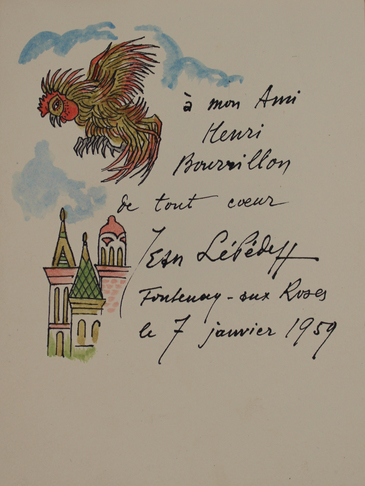 à mon Ami
Henri
Bourrillon
de tout cœur
Jean Lébédeff
Fontenay-aux Roses
le 7 janvier 1959